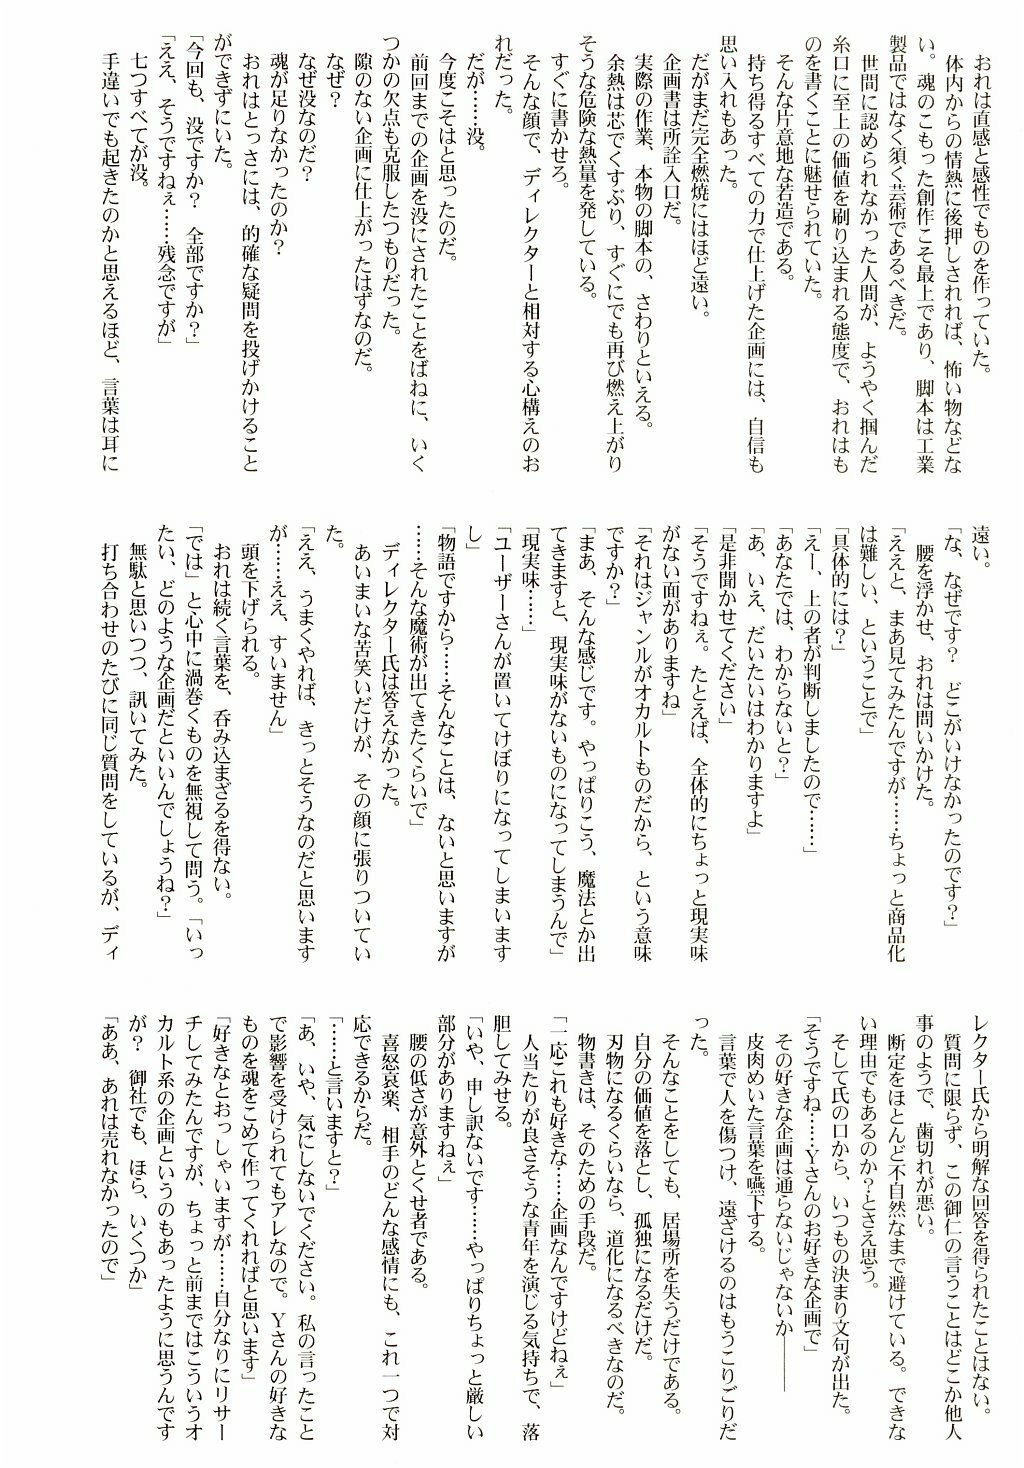 おれは直感と感性でものを作っていた。
体内からの情熱に後押しされれば、怖い物などな
い。魂のこもった創作こそ最上であり、脚本は工業
製品ではなく須く芸術であるべきだ。
世間に認められなかった人間が、ようやく掴んだ
糸口に至上の価値を刷り込まれる態度で、おれはも
のを書くことに魅せられていた。
そんな片意地な若造である。
持ち得るすべての力で仕上げた企画には、自信も
思い入れもあった。
だがまだ完全燃焼にはほど遠い。
企画書は所詮入口だ。
実際の作業、本物の脚本の、さわりといえる。
余熱は芯でくすぶり、すぐにでも再び燃え上がり
そうな危険な熱量を発している。
すぐに書かせろ。
そんな顔で、ディレクターと相対する心構えのお
れだった。
だが……没。
今度こそはと思ったのだ。
前回までの企画を没にされたことをばねに、いく
つかの欠点も克服したつもりだった。
隙のない企画に仕上がったはずなのだ。
なぜ？
なぜ没なのだ？
魂が足りなかったのか？
おれはとっさには、的確な疑問を投げかけること
ができずにいた。
「今回も、没ですか？　全部ですか？」
「ええ、そうですねぇ……残念ですが」
七つすべてが没。
手違いでも起きたのかと思えるほど、言葉は耳に
遠い。
「な、なぜです？　どこがいけなかったのです？」
腰を浮かせ、おれは問いかけた。
「ええと、まあ見てみたんですが……ちょっと商品化
は難しい、ということで」
「具体的には？」
「えー、上の者が判断しましたので……」
「あなたでは、わからないと？」
「あ、いえ、だいたいはわかりますよ」
「是非聞かせてください」
「そうですねぇ。たとえば、全体的にちょっと現実味
がない面がありますね」
「それはジャンルがオカルトものだから、という意味
ですか？」
「まあ、そんな感じです。やっぱりこう、魔法とか出
てきますと、現実味がないものになってしまうんで」
「現実味……」
「ユーザーさんが置いてけぼりになってしまいます
し」
「物語ですから……そんなことは、ないと思いますが
……そんな魔術が出てきたくらいで」
ディレクター氏は答えなかった。
あいまいな苦笑いだけが、その顔に張りついてい
た。
「ええ、うまくやれば、きっとそうなのだと思います
が……ええ、すいません」
頭を下げられる。
おれは続く言葉を、呑み込まざるを得ない。
「では」と心中に渦巻くものを無視して問う。「いっ
たい、どのような企画だといいんでしょうね？」
無駄と思いつつ、訊いてみた。
打ち合わせのたびに同じ質問をしているが、ディ
レクター氏から明解な回答を得られたことはない。
質問に限らず、この御仁の言うことはどこか他人
事のようで、歯切れが悪い。
断定をほとんど不自然なまで避けている。できな
い理由でもあるのか？とさえ思う。
そして氏の口から、いつもの決まり文句が出た。
「そうですね……Ｙさんのお好きな企画で」
その好きな企画は通らないじゃないか――
皮肉めいた言葉を嚥下する。
言葉で人を傷つけ、遠ざけるのはもうこりごりだ
った。
そんなことをしても、居場所を失うだけである。
自分の価値を落とし、孤独になるだけだ。
刃物になるくらいなら、道化になるべきなのだ。
物書きは、そのための手段だ。
「一応これも好きな……企画なんですけどねぇ」
人当たりが良さそうな青年を演じる気持ちで、落
胆してみせる。
「いや、申し訳ないです……やっぱりちょっと厳しい
部分がありますねぇ」
腰の低さが意外とくせ者である。
喜怒哀楽、相手のどんな感情にも、これ一つで対
応できるからだ。
「……と言いますと？」
「あ、いや、気にしないでください。私の言ったこと
で影響を受けられてもアレなので。Ｙさんの好きな
ものを魂をこめて作ってくれればと思います」
「好きなとおっしゃいますが……自分なりにリサー
チしてみたんですが、ちょっと前まではこういうオ
カルト系の企画というのもあったように思うんです
が？　御社でも、ほら、いくつか」
「ああ、あれは売れなかったので」